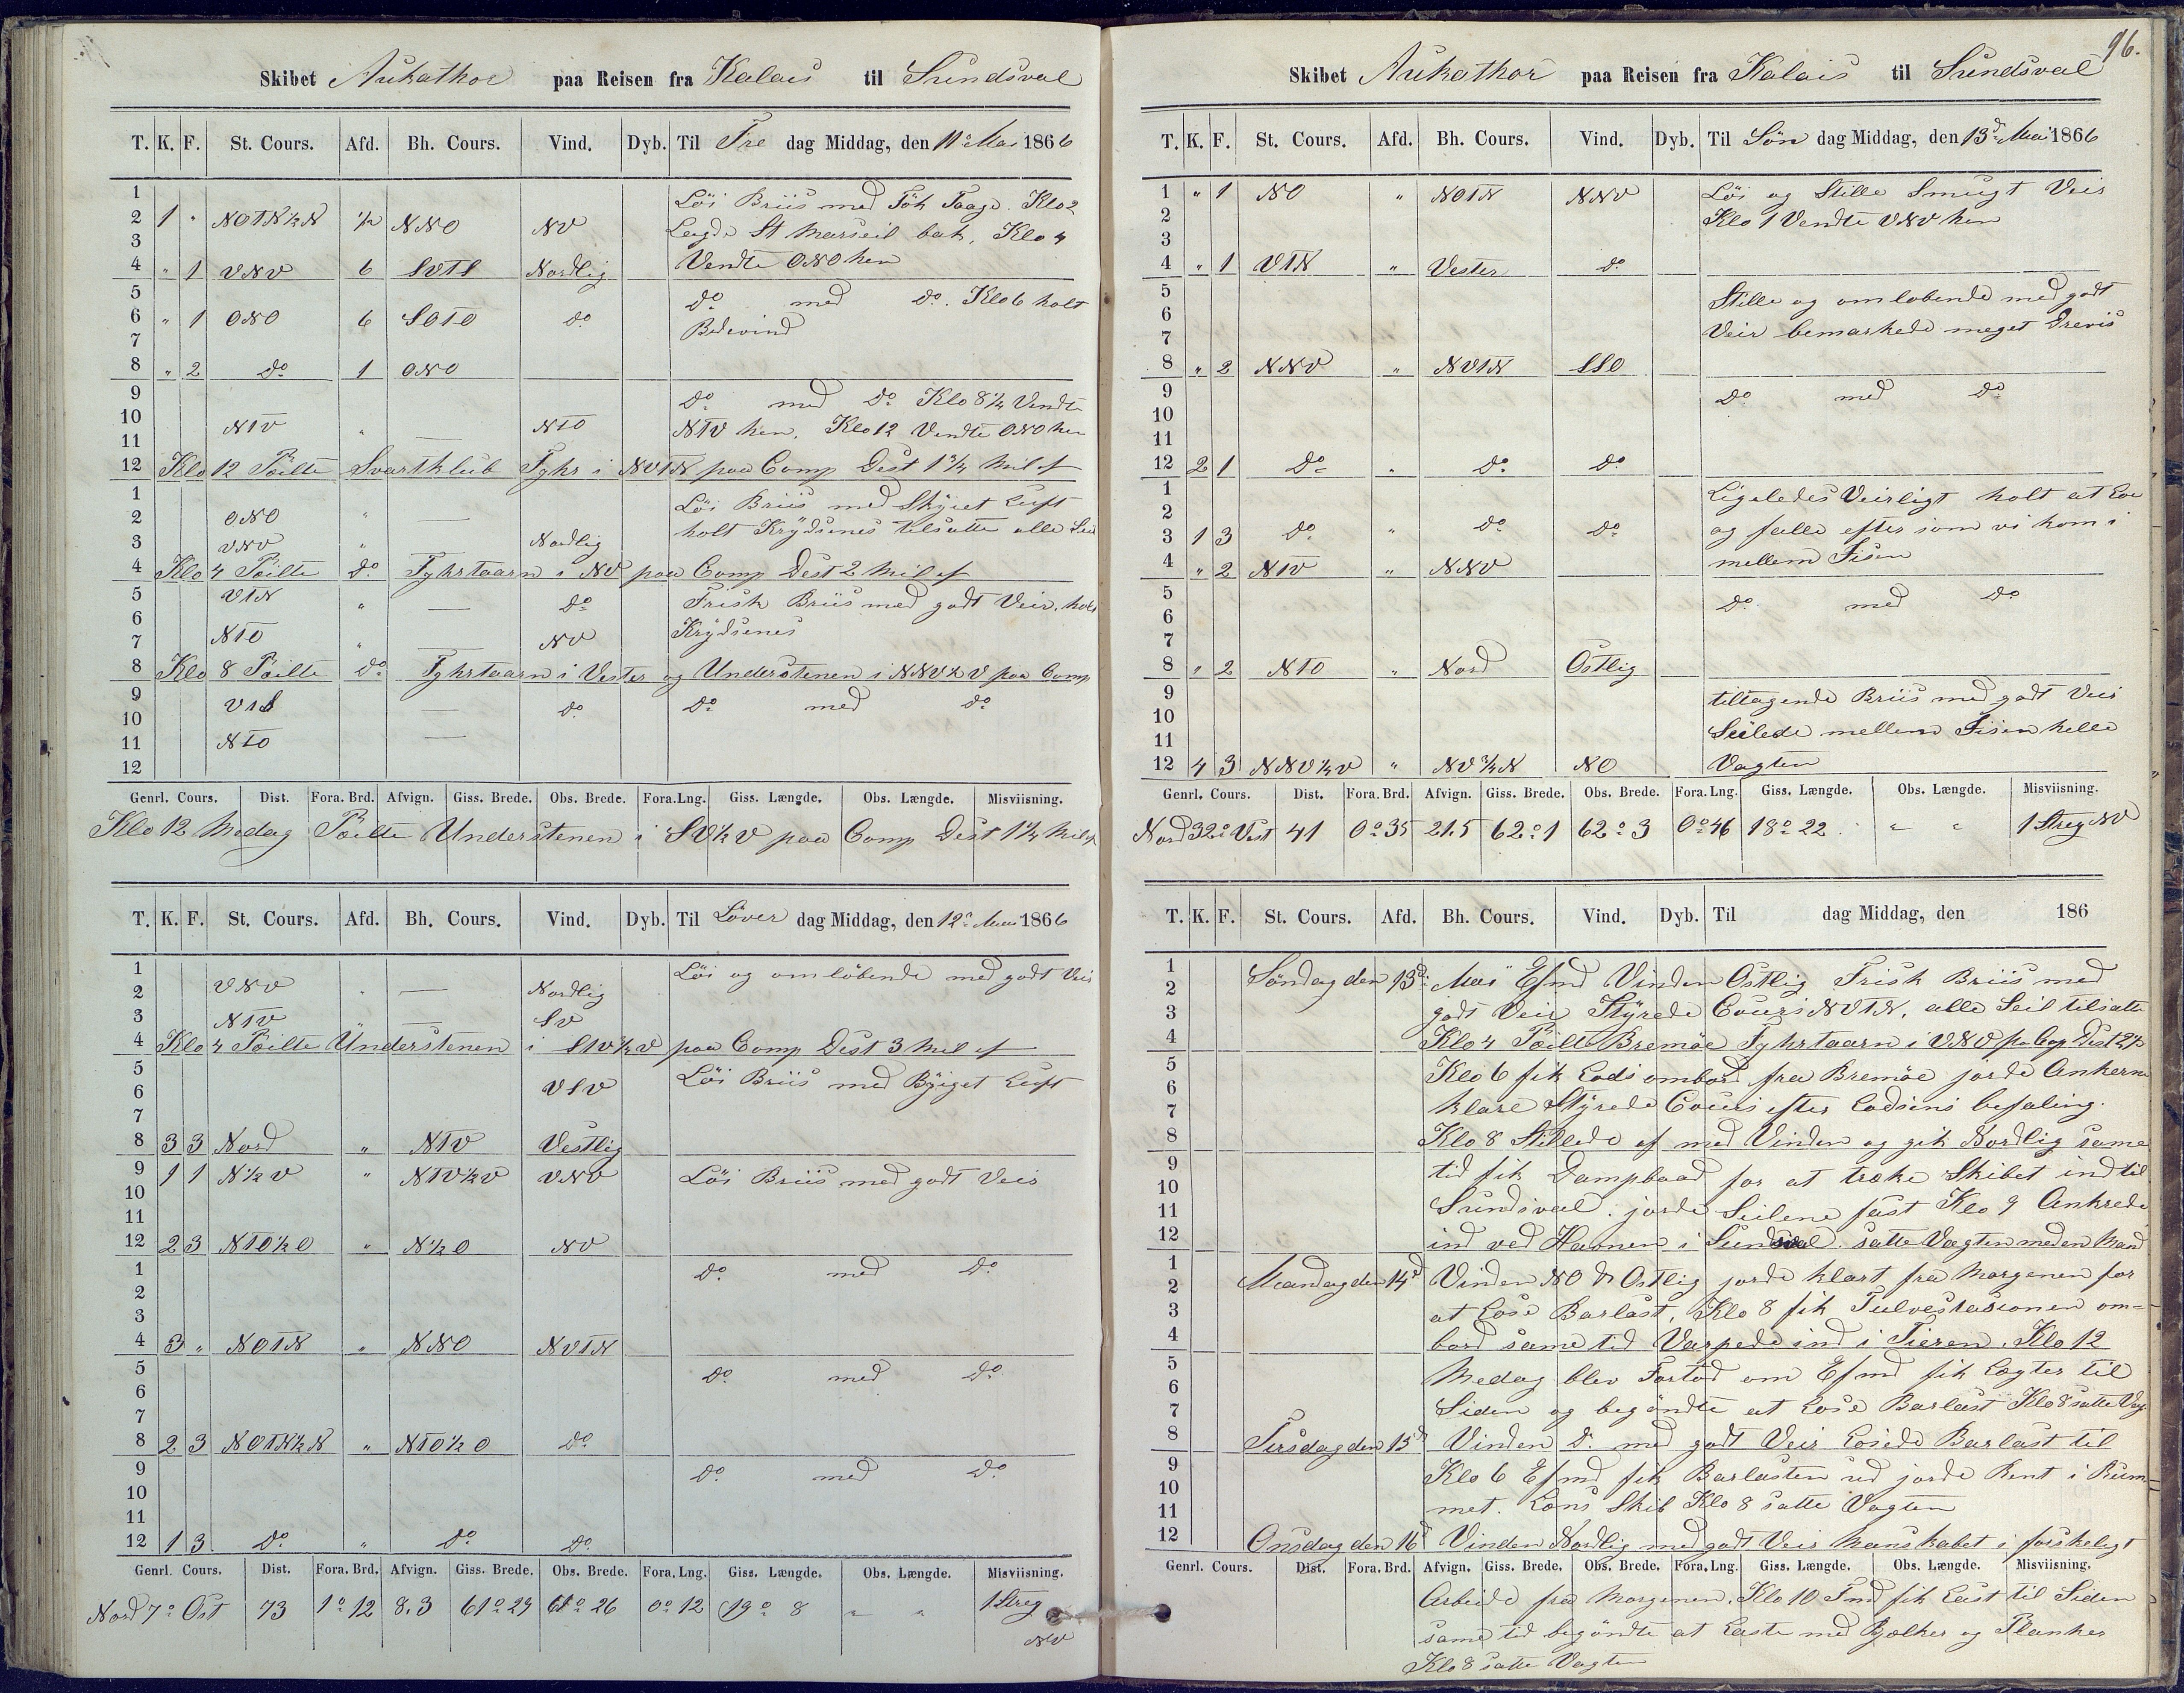 Skibet Aukathor paa Reisen fra Kalais til Sundsval
T. K. F. St. Cours. Afd. Bh. Cours. Vind. Dyb. Til Fre dag Middag, den 11te Mai 1866
1 Löi Briis med Tök Taage. Klo 2
2 1 " NOTN½N ½ NNO NV Lagde St Marseil bak, Klo 4
3 Vendte ONO hen
4 " 1 VNV 6 SVTS Nordlig
5 do med do. Klo 6 holt
6 " 1 ONO 6 SOTO do Bedevind
7
8 " 2 do 1 ONO
9 do med do Klo 8¼ Vendte
10 NTV " — NTO NTV hen. Klo 12 Vendte ONO hen
11
12 Klo 12 Peilte Svartklub Fyhr i NVTN paa Comp Dest 1¾ Mil af
1 Löi Briis med Skyiet Luft
2 ONO " — holt Krydsenes tilsatte alle Seil
3 VNV " — Nordlig
4 Klo 4 Peilte do Fyhrtaarn i NV paa Comp Dest 2 Mil af
5 VTN " — do Frisk Briis med godt Veir. holt
6 Krydsenes
7 NTO " — NV
8 Klo 8 Peilte do Fyhrtaarn i Vester og Understenen i NNV½V paa Comp
9 VTS — do do med do
10
11 NTO —
12
Genrl. Cours. Dist. Fora. Brd. Afvign. Giss. Brede. Obs. Brede. Fora. Lng. Giss. Længde. Obs. Længde. Misviisning.
Klo 12 Medag Peilte Understenen i SV½V paa Comp Dest 1¼ Mil af
T. K. F. St. Cours. Afd. Bh. Cours. Vind. Dyb. Til Löver dag Middag, den 12te Mai 1866
1 Löi og omlöbende med godt Veir
2 VNV " — Nordlig
3 NTV " — SV
4 Klo 4 Peilte Understenen i STV½V paa Comp Dest 3 Mil af
5 VSV Löi Briis med Byiget Luft
6
7
8 3 3 Nord " NTV Vestlig
9 1 1 N½V " NTV½V VNV Löi Briis med godt Veir
10
11
12 2 3 NTO½O " N½O NV
1 do med do
2
3
4 3 " NOTN " NNO NVTN
5 do med do
6
7
8 2 3 NOTN½N " NTO½O do
9 do med do
10
11
12 1 3 do " do do
Genrl. Cours. Dist. Fora. Brd. Afvign. Giss. Brede. Obs. Brede. Fora. Lng. Giss. Længde. Obs. Længde. Misviisning.
Nord 7° Ost 73 1° 12 8.3 61° 29 61° 26 0° 12 19° 8 " " 1 Streg
NV
96.
Skibet Aukathor paa Reisen fra Kalais til Sundsval
T. K. F. St. Cours. Afd. Bh. Cours. Vind. Dyb. Til Sön dag Middag, den 13de Mai 1866
1 " 1 NO " NOTN NNV Löi og Stille Smugt Veir
2 Klo 1 Vendte VNV hen
3
4 " 1 VTN " Vester do
5 Stille og omlobende med godt
6 Veir bemarkede meget Drevis
7
8 " 2 NNV " NVTN SSO
9 do med do
10
11
12 2 1 do " do do
1 Ligeledes Veirligt holt at Loe
2 og falle efter som vi kom i
3 1 3 do " do do mellem Iisen
4 " 2 NTV " NNV
5 do med do
6
7
8 " 2 NTO " Nord Ostlig
9 tiltagende Briis med godt Veir
10 Seilede mellem Iisen helle
11 Vagten
12 4 3 NNV½V " NV¾N NO
Genrl. Cours. Dist. Fora. Brd. Afvign. Giss. Brede. Obs. Brede. Fora. Lng. Giss. Længde. Obs. Længde. Misviisning.
Nord 32° Vest 41 0° 35 21.5 62° 1 62° 3 0° 46 18° 22 " " 1 Streg NV
T. K. F. St. Cours. Afd. Bh. Cours. Vind. Dyb. Til dag Middag, den 186
1 Söndag den 13de Mai Efmd Vinden Ostlig Frisk Briis med
2 godt Veir Styrede Cours NVTN, alle Seil tilsatte
3 Klo 4 Peilte Bremöe Fyhrtaarn i VNV pa Cop Dest 2½
4 Klo 6 fik Lods ombord fra Bremöe jorde Ankerne
5 klare Styrede Cours efter Lodsens befaling.
6 Klo 8 Stillede af med Vinden og gik Nordlig same
7 tid fik Dampbaad for at træke Skibet ind til
8 Sundsval. jorde Seilene fast Klo 9 Ankrede
9 ind ved Havnen i Sundsval. satte Vagten med en Mand
10 Mandag den 14d Vinden NO & Ostlig jorde klart fra Morgenen for
11 at Lose Barlast, Klo 8 fik Tulvestasionen om=
12 bord same tid Varpede ind i Tieren. Klo 12
1 Medag blev Fortöd om Efmd fik Lægter til
2 Siden og begöndte at Lose Barlast Klo 8 satte Vag.
3 Tirsdag den 15d Vinden do med godt Veir Losede Barlast til
4 Klo 6 Efmd fik Barlasten ud jorde Rent i Rum-
5 met. Lens Skib Klo 8 satte Vagten
6 Onsdag den 16d Vinden Nordlig med godt Veir Manskabet i forskeligt
7
8
9
10
11
12
Genrl. Cours. Dist. Fora. Brd. Afvign. Giss. Brede. Obs. Brede. Fora. Lng. Giss. Længde. Obs. Længde. Misviisning.
Arbeide fra Morgenen. Klo 10 Fmd fik Last til Siden
same tid begöndte at Laste med Bjælker og Planker
Klo 8 satte Vagten